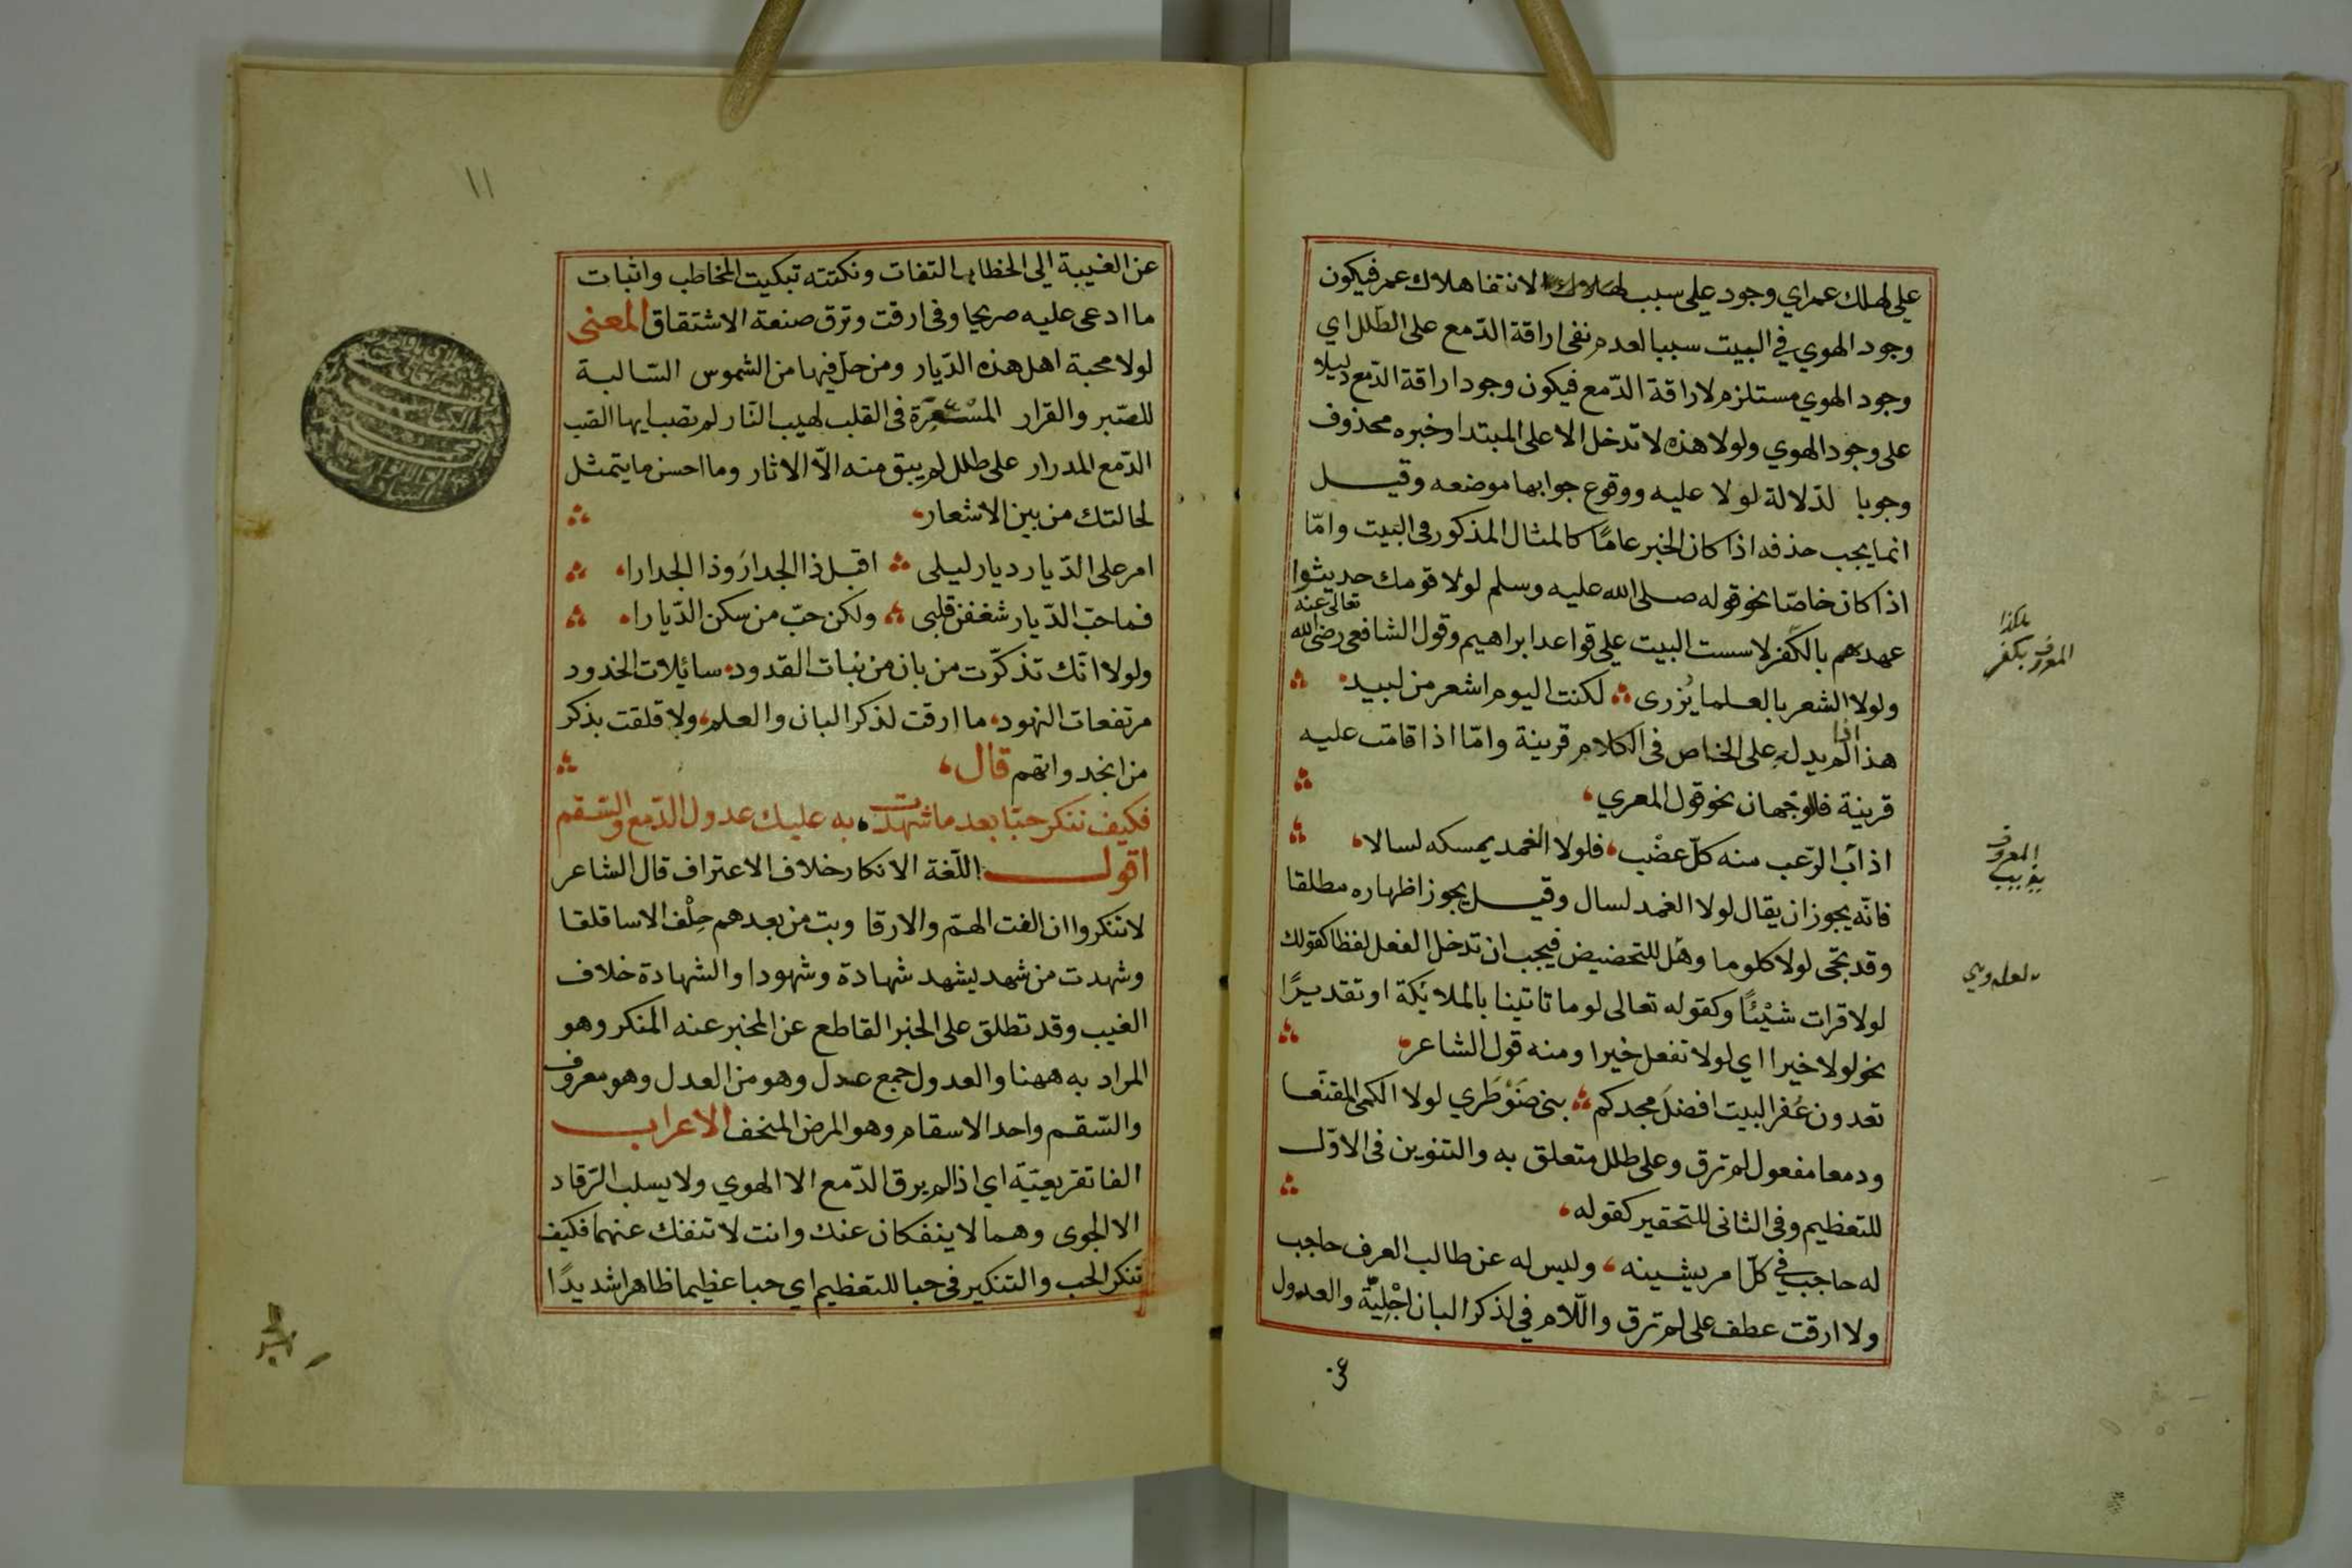 على لهلك عمر اي وجود على سبب لهلاك الانتفا هلاك عمر فيكون
وجود الهوي في البيت سببا لعدم نفى اراقة الدّمع على الطّلل اي
وجود الهوي مستلزم لاراقة الدّمع فيكون وجود اراقة الدّمع دليلا
على وجود الهوي ولولا هذه لا تدخل الا على المبتدا وخبره محذوف
وجوبا لدلالة لولا عليه ووقوع جوابها موضعه وقيل
انما يجب حذفه اذا كان الخبر عامًا كالمثال المذكور فى البيت وامّا
اذا كان خاصّا نحو قوله صلى الله عليه وسلم لولا قومك حديثوا
عهدهم بالكفر لاسست البيت على قواعد ابراهيم وقول الشافعى رضى الله تعالى عنه
ولولا الشعر بالعلما يُزرى لكنت اليوم اشعر من لبيد
هذا اذا لم يدل على الخاص فى الكلام قرينة وامّا اذا قامت عليه
قرينة فالوجهان نحو قول المعري
اذابَ الرّعب منه كلّ عضْب فلولا الغمد يمسكه لسالا
فانّه يجوز ان يقال لولا الغمد لسال وقيل يجوز اظهاره مطلقا
وقد تجى لولا كلوما وهل للتحضيض فيجب ان تدخل الفعل لفظا كقولك
لولا قرات شيْئًا وكقوله تعالى لوما تاتينا بالملائكة او تقديرًا
نحو لولا خيرا اي لولا تفعل خيرا ومنه قول الشاعر
تعدون عُفر البيت افضلَ مجدكم بنى ضَوْطَري لولا الكمى المقنّعا
ودمعا مفعول لم ترق وعلى طلل متعلق به والتنوين فى الاوّل
للتعظيم وفى الثانى للتحقير كقوله
له حاجب في كلّ امر يشينه وليس له عن طالب العرف حاجب
ولا ارقت عطف على لم ترق واللّام في لذكر البان اجْليّة والعدول
عن
هكذا
المعروف بكفر
المعروف
يذيب
لعله روي
١١
عن الغيبة الى الخطاب التفات ونكتته تبكيت المخاطب واثبات
ما ادعى عليه صريحا وفى ارقت وترق صنعة الاشتقاق المعنى
لولا محبة اهل هذه الدّيار ومن حل فيها من الشموس السّالبة
للصّبر والقرار المسْتعِرَة فى القلب لهيب النّار لم تصب ايها الصّب
الدّمع المدرار على طلل لم يبق منه الّا الاثار وما احسن ما يتمثل
لحالتك من بين الاشعار
امر على الدّيار ديار ليلى اقبل ذا الجدارَ وذا الجدارا
فما حبّ الدّيار شغفن قلبى ولكن حبّ من سكن الدّيارا
ولولا انّك تذكّرت من بان من نبات القدود سائلات الخدود
مرتفعات النهود ما ارقت لذكر البان والعلم ولا قلقت بذكر
من انجد واتهم قال
فكيف تنكر حبّا بعد ما شهدت به عليك عدول الدّمع والسّقم
اقول اللّغة الانكار خلاف الاعتراف قال الشاعر
لا تنكروا ان الفت الهمّ والارقا وبت من بعدهم حِلْف الاسا قلقا
وشهدت من شهد يشهد شهادة وشهودا والشهادة خلاف
الغيب وقد تطلق على الخبر القاطع عن المخبر عنه المنكر وهو
المراد به ههنا والعدول جمع عدل وهو من العدل وهو معروف
والسّقم واحد الاسقام وهو المرض المنحف الاعراب
الفا تفريعيّة اي اذا لم يرق الدّمع الا الهوي ولا يسلب الرّقاد
الا الجوى وهما لا ينفكان عنك وانت لا تنفك عنهما فكيف
تنكر الحب والتنكير فى حبا للتعظيم اي حبا عظيما ظاهرا شديدًا